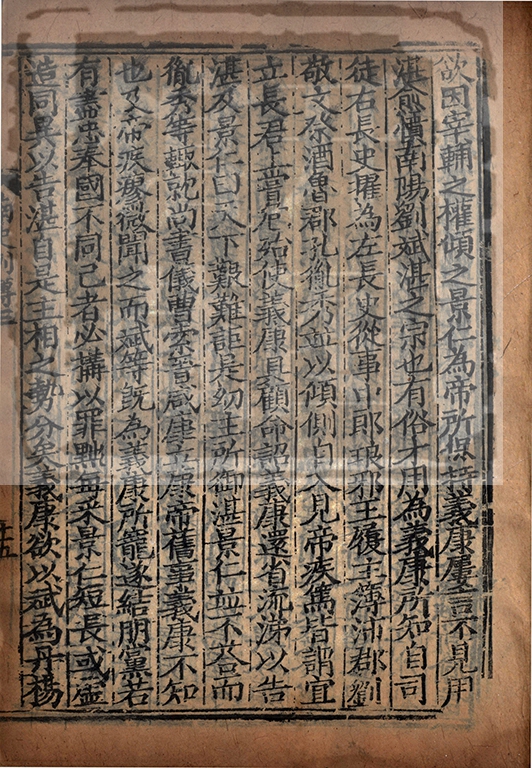 欲因宰輔之權傾之景仁為帝所保持義康屢言不見用
湛愈憤南陽劉斌湛之宗也有俗才用為義康所知自司
徒右長史擢為左長史從事中郎琅邪王履主簿沛郡劉
敬文祭酒魯郡孔胤秀並以傾側自入見帝疾篤皆謂宜
立長君上嘗危殆使義康具顧命詔義康還省流涕以告
湛及景仁曰天下艱難詎是幼主所御湛景仁並不荅而
胤秀等輒就尚書儀曹索晉咸康立康帝舊事義康不知
也及帝疾瘳微聞之而斌等既為義康所寵遂結朋黨若
有盡忠奉國不同己者必構以罪黜每采景仁短長或虛
造同異以告湛自是主相之勢分矣義康欲以斌為丹楊